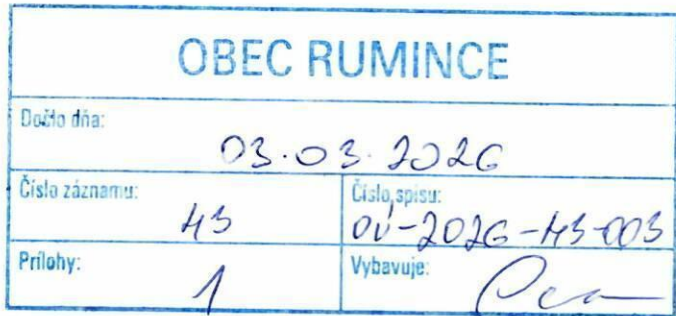 OBEC RUMINCE
Došlo dňa:
03.03.2026
Číslo záznamu:
43
Číslo spisu:
OU-2026-43-003
Prílohy:
1
Vybavuje: